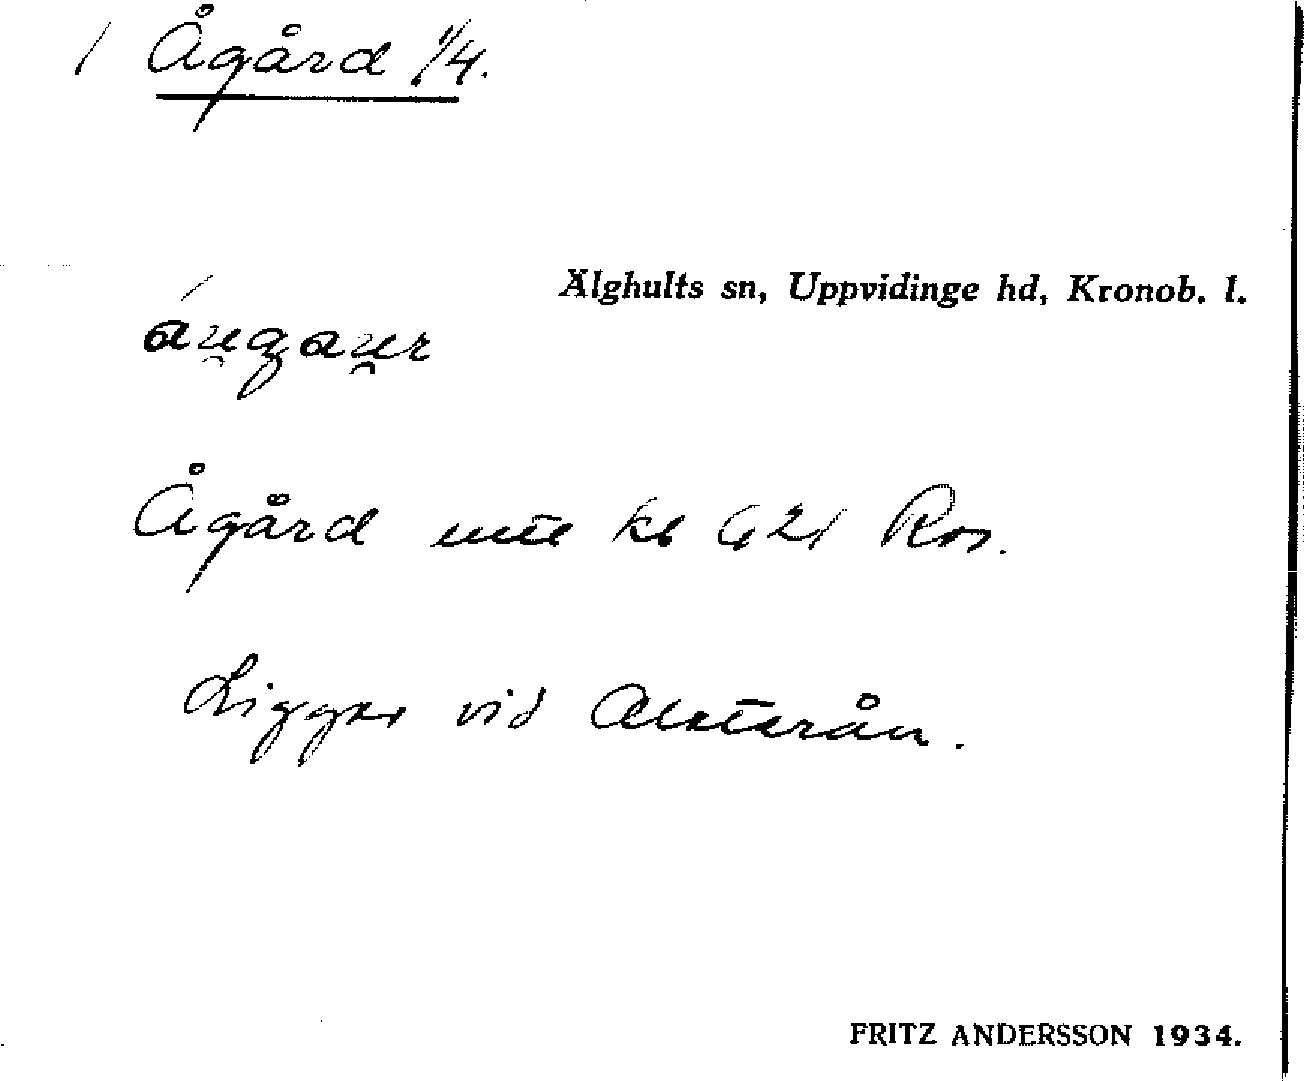 / Ågård 1/4.
Älghults sn, Uppvidinge hd, Kronob. l.
áu̯gau̯r
Ågård mtl kb 421 Ros.
Ligger vid Alsterån.
FRITZ ANDERSSON 1934.